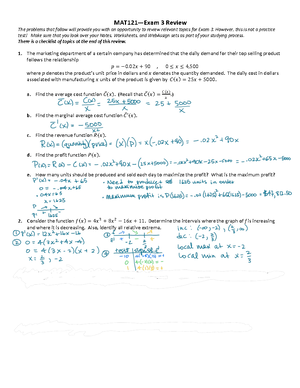 MAT121—Exam 3 Review
The problems that follow will provide you with an opportunity to review relevant topics for Exam 3. However, this is not a practice
test! Make sure that you look over your Notes, Worksheets, and WebAssign sets as part of your studying process.
There is a checklist of topics at the end of this review.
1. The marketing department of a certain company has determined that the daily demand for their top selling product
follows the relationship
p = −0.02x + 90 , 0 ≤ x ≤ 4,500
where p denotes the product's unit price in dollars and x denotes the quantity demanded. The daily cost in dollars
associated with manufacturing x units of the product is given by C(x) = 25x + 5000.
a. Find the average cost function C̄(x). (Recall that C̄(x) = C(x)/x)
C̄(x) = C(x)/x = 25x + 5000/x = 25 + 5000/x
b. Find the marginal average cost function C̄'(x).
C̄'(x) = -5000/x²
c. Find the revenue function R(x).
R(x) = (quantity)(price) = (x)(p) = x(-.02x + 90) = -.02x² + 90x
d. Find the profit function P(x).
P(x) = R(x) - C(x) = -.02x² + 90x - (25x + 5000) = -.02x² + 90x - 25x - 5000 = -.02x² + 65x - 5000
e. How many units should be produced and sold each day to maximize the profit? What is the maximum profit?
P'(x) = -.04x + 65
0 = -.04x + 65
.04x = 65
x = 1625
2. Consider the function f(x) = 4x³ + 8x² − 16x + 11. Determine the intervals where the graph of f is increasing
and where it is decreasing. Also, identify all relative extrema.
f'(x) = 12x² + 16x - 16
0 = 4(3x² + 4x - 4)
0 = 4(3x - 2)(x + 2)
x = 2/3, -2
local max at x = -2
local min at x = 2/3